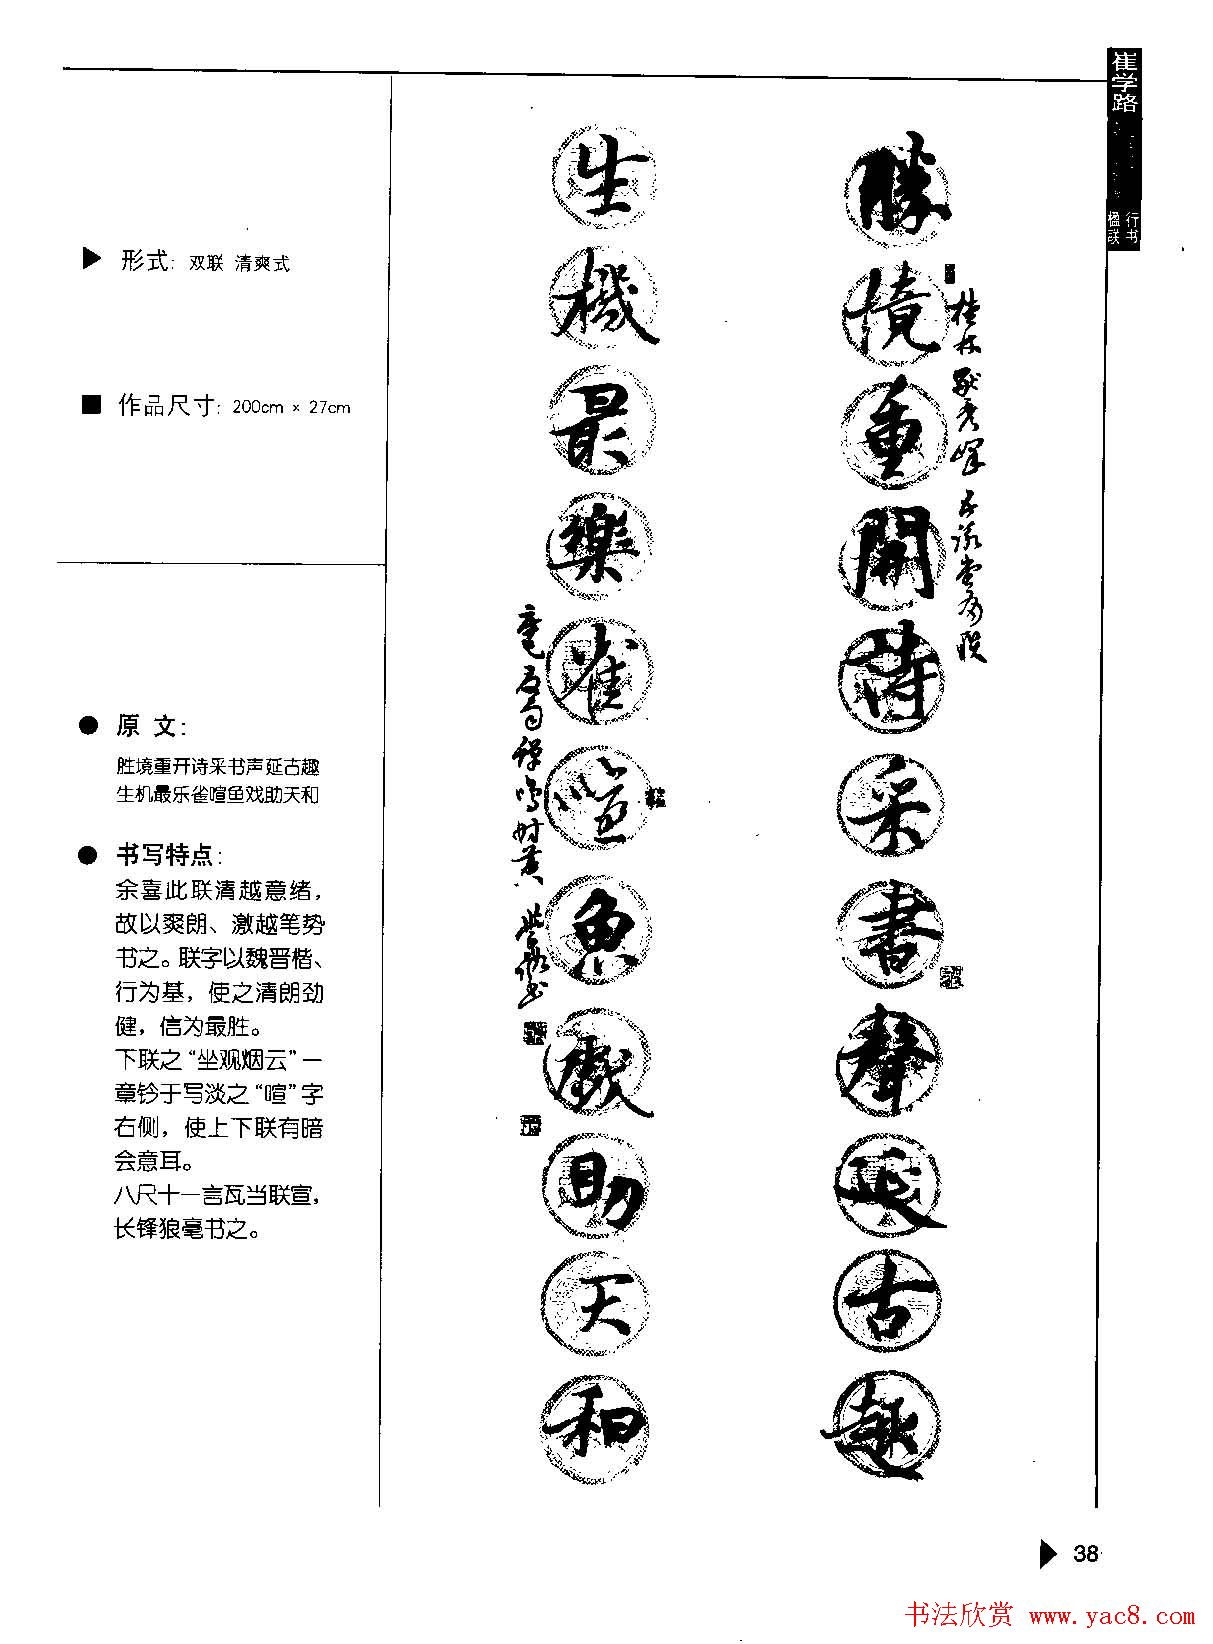 崔学路
行书
楹联
▶ 形式: 双联 清爽式
■ 作品尺寸: 200cm × 27cm
● 原 文:
胜境重开诗采书声延古趣
生机最乐雀喧鱼戏助天和
● 书写特点:
余喜此联清越意绪,
故以爽朗、激越笔势
书之。联字以魏晋楷、
行为基，使之清朗劲
健，信为最胜。
下联之“坐观烟云”一
章钤于写淡之“喧”字
右侧，使上下联有暗
会意耳。
八尺十一言瓦当联宣,
长锋狼毫书之。
勝境重開詩采書聲延古趣
生機最樂雀喧魚戲助天和
▶ 38
书法欣赏 www.yac8.com